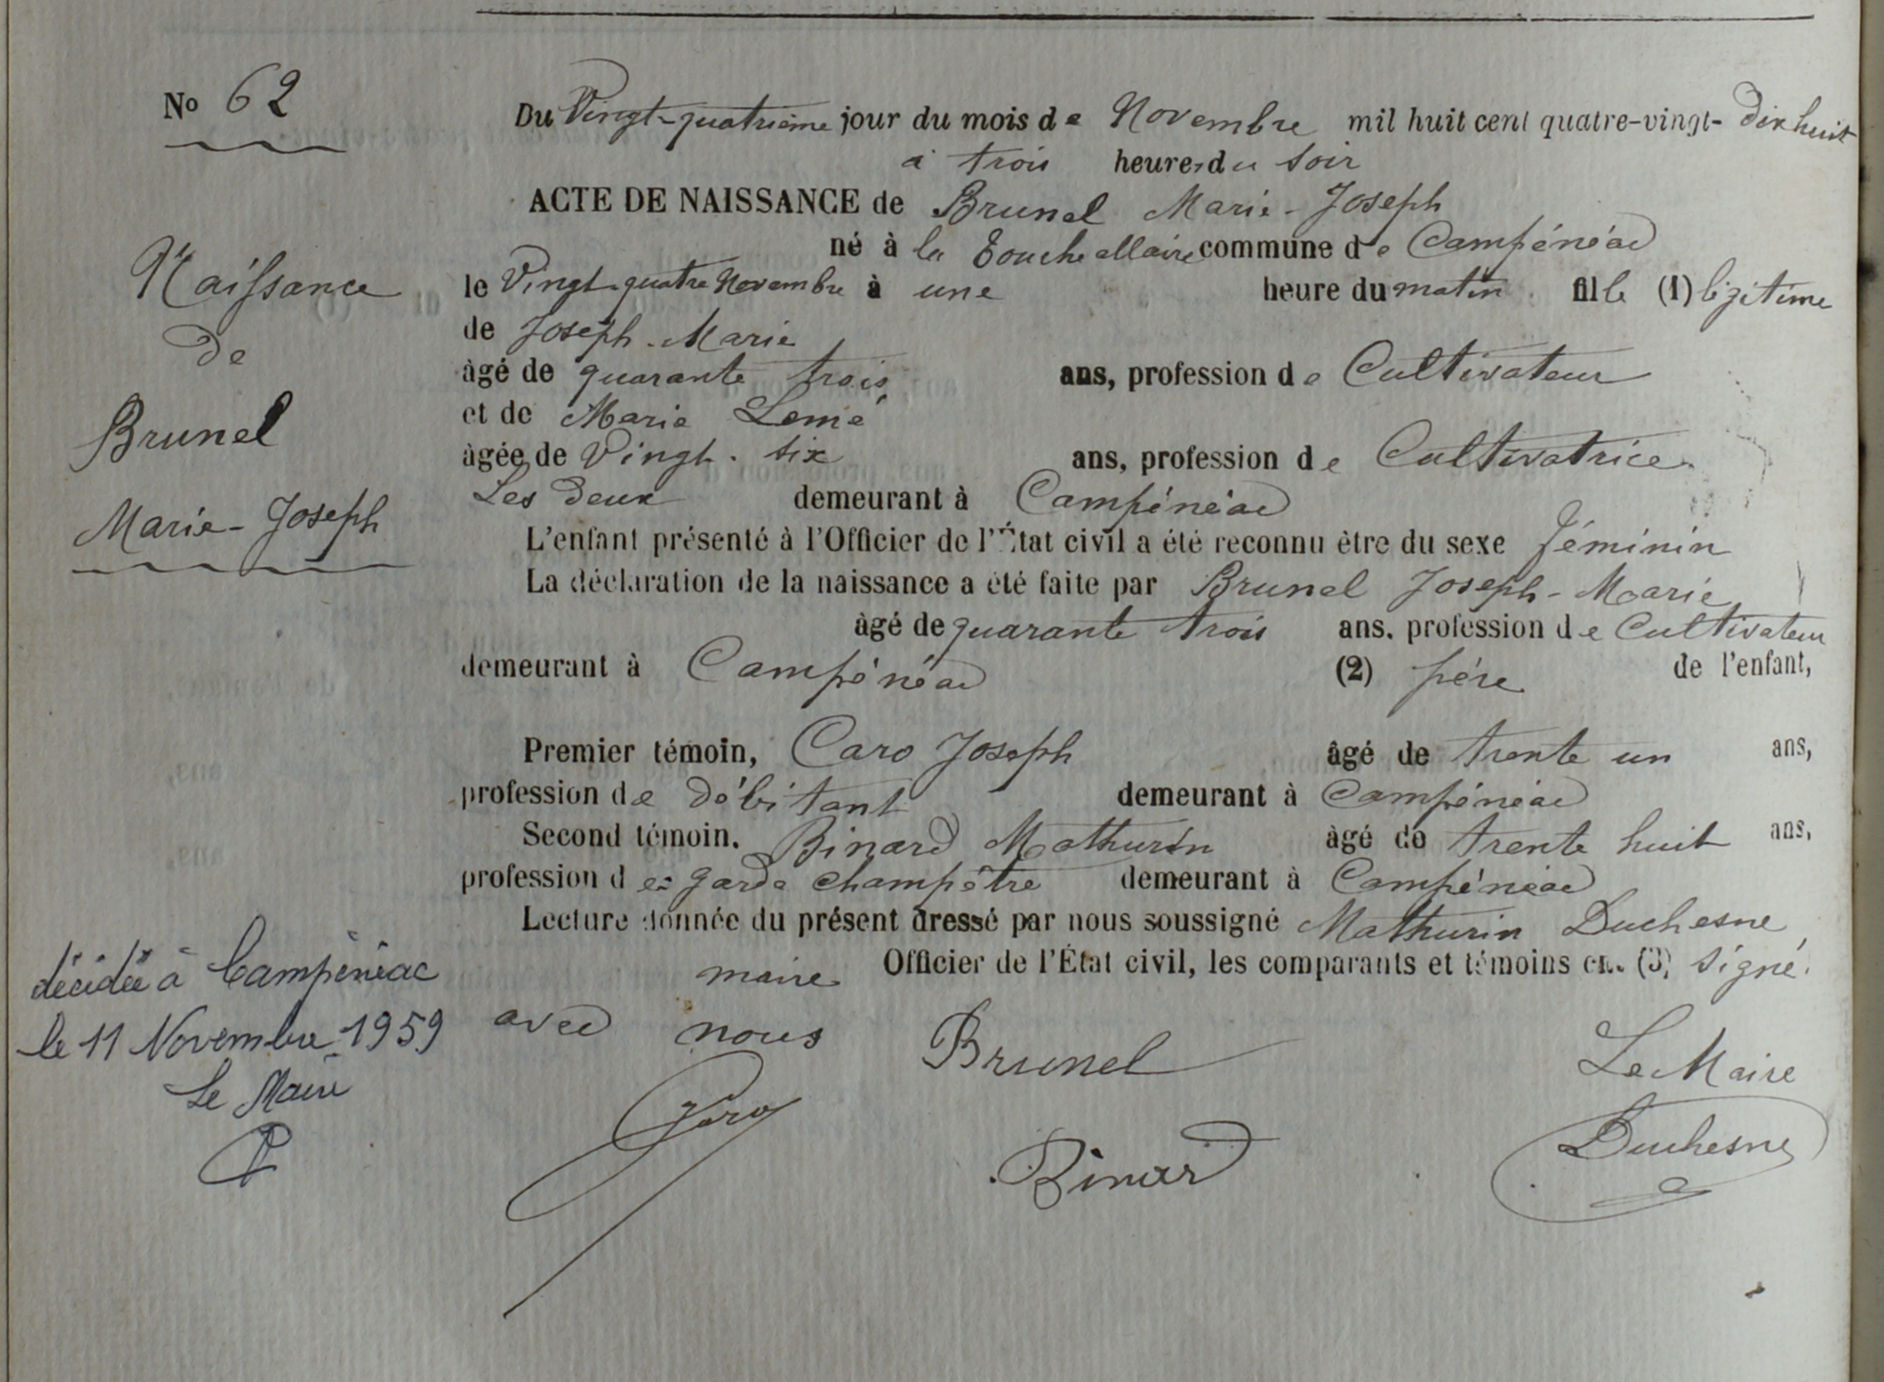 No 62
Du Vingt-quatrième jour du mois de Novembre mil huit cent quatre-vingt-dix huit
à trois heures du soir
ACTE DE NAISSANCE de Brunel Marie-Joseph
né à la Touche allaire commune de Campénéac
le Vingt-quatre Novembre à une heure du matin fille (1) légitime
de Joseph-Marie
âgé de quarante trois ans, profession de Cultivateur
et de Marie Lemé
âgée de Vingt-six ans, profession de Cultivatrice
Les deux demeurant à Campénéac
L'enfant présenté à l'Officier de l'État civil a été reconnu être du sexe féminin
La déclaration de la naissance a été faite par Brunel Joseph-Marie
âgé de quarante trois ans, profession de Cultivateur
demeurant à Campénéac (2) père de l'enfant,
Premier témoin, Caro Joseph âgé de trente un ans,
profession de débitant demeurant à Campénéac
Second témoin, Binard Mathurin âgé de trente huit ans,
profession de garde champêtre demeurant à Campénéac
Lecture donnée du présent dressé par nous soussigné Mathurin Duchesne
maire Officier de l'État civil, les comparants et témoins ont (3) signé
avec nous
Brunel
Le Maire
Caro
Binard
Duchesne
Naissance
de
Brunel
Marie-Joseph
décédée à Campénéac
le 11 Novembre 1959
Le Maire